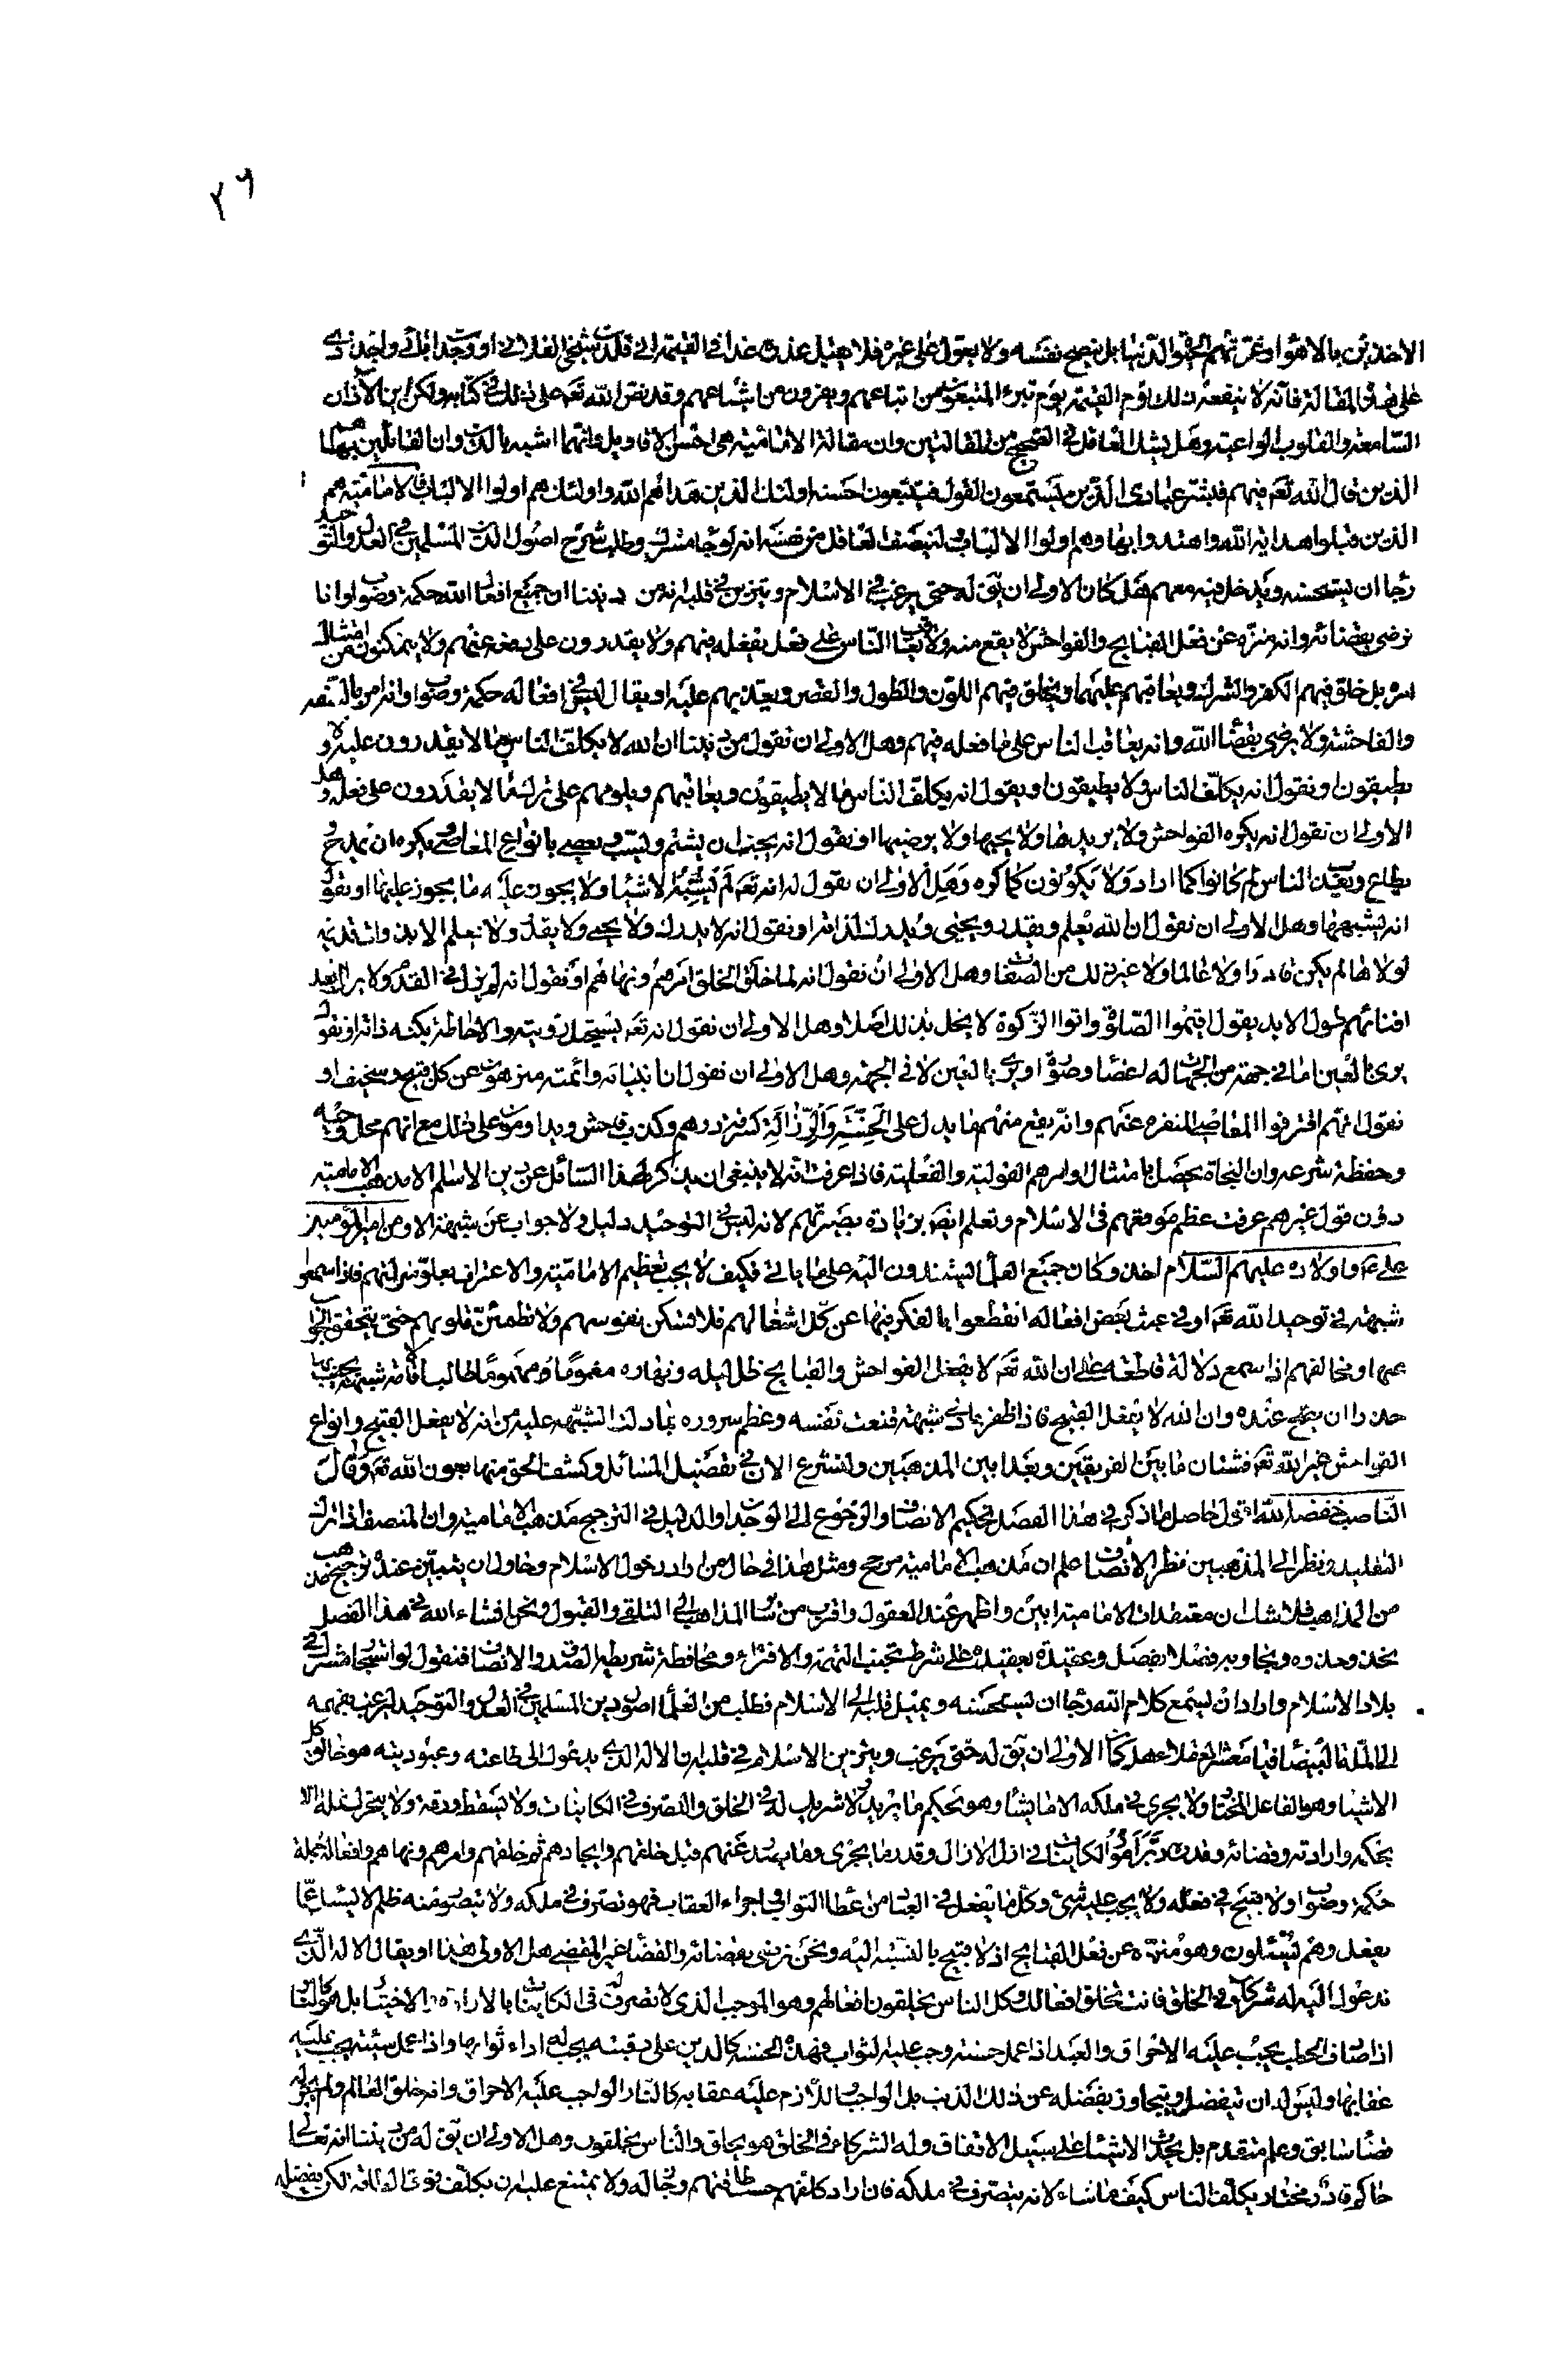 ٢٦
الاخذين بالاهواء وغرتهم الحيوة الدنيا بل ينصح نفسه ولا يعول على غيره فلا يقبل عذره غدا في القيمة اني قلدت شيخي الفلاني او وجدت ابائي واجدادي
على هذه المقالة فانه لا ينفعه ذلك يوم القيمة يوم تبرء المتبعون من اتباعهم ويفرون من اشياعهم وقد نص الله تعم على ذلك في كتابه ولكن اين الاذان
السامعة والقلوب الواعية وهل يشك العاقل في الصحيح من المقالتين وان مقالة الامامية هي احسن الاقاويل وانها اشبه بالدين وان القائلين بها هم
الذين قال الله تعم فيهم فبشر عبادي الذين يستمعون القول فيتبعون احسنه اولئك الذين هداهم الله واولئك هم اولوا الالباب فالامامية هم
الذين قبلوا هداية الله واهتدوا بها وهم اولوا الالباب ولينصف العاقل من نفسه انه لو جاء مشرك وطلب شرح اصول الدين المسلمين في العدل والتوحيد
رجاء ان يستحسنه ويدخل فيه معهم هل كان الاولى ان يق له حتى يرغب في الاسلام ويتزين في قلبه انه من ديننا ان جميع افعال الله حكمة وصواب وانا
نرضى بقضائه وانه منزه عن فعل القبايح والفواحش لا يقع منه ولا يعاقب الناس على فعل يفعله فيهم ولا يقدرون على دفعه عنهم ولا يتمكنون من امتثال
امره بل خلق فيهم الكفر والشرك ويعاقبهم عليهما ويخلق فيهم اللون والطول والقصر ويعذبهم عليه او يقال ليس في افعاله حكمة وصواب وانه امر بالسفه
والفاحشة ولا يرضى بقضاء الله وانه يعاقب الناس على ما فعله فيهم وهل الاولى ان نقول من ديننا ان الله لا يكلف الناس ما لا يقدرون عليه ولا
يطيقون او نقول انه يكلف الناس ما لا يطيقون ويعاقبهم ويلومهم على ترك ما لا يقدرون على فعله وهل
الاولى ان نقول انه يكره الفواحش ولا يريدها ولا يحبها ولا يرضيها او نقول انه يحب ان يشتم ويسب ويعصى بانواع المعاصي ويكره ان يمدح و
يطاع ويعذب الناس لم كانوا كما اراد ولا يكونون كما كره وهل الاولى ان نقول له انه تعم لم يشبه الاشياء ولا يجوز عليه ما يجوز عليها او نقول
انه يشبهها وهل الاولى ان نقول ان الله يعلم ويقدر ويحيى ويدرك لذاته او نقول انه لا يدرك ولا يحيى ولا يقدر ولا يعلم الا بذوات قديمة
لولاها لم يكن قادرا ولا عالما ولا غير ذلك من الصفات وهل الاولى ان نقول انه لما خلق الخلق امرهم ونهاهم او نقول انه لم يزل في القدم ولا يزال بعد
افنائهم طول الابد يقول اقيموا الصلوة واتوا الزكوة لا يخل بذلك اصلا وهل الاولى ان نقول انه تعم يستحيل رؤيته والاحاطة بكنه ذاته او نقول
يرى بالعين اما في جهة من الجهات له اعضاء وصورة او يرى بالعين لا في الجهة وهل الاولى ان نقول ان انبيائه وائمته منزهون عن كل قبيح وسخيف او
نقول انهم اقترفوا المعاصي المنفرة عنهم وانه يقع منهم ما يدل على الخسة والرذالة كسرقة درهم وكذب فاحش ويداومون على ذلك مع انهم محل وحيه
وحفظة شرعه وان النجاة تحصل بامتثال اوامرهم القولية والفعلية فاذا عرفت انه لا ينبغي ان يذكر لهذا السائل عن دين الاسلام الا مذهب الامامية
دون قول غيرهم عرفت عظم موقعهم في الاسلام وتعلم ايض بزيادة بصيرتهم لانه ليس في التوحيد دليل ولا جواب عن شبهة الا ومن امير المؤمنين
علي عم واولاده عليهم السلام اخذ وكان جميع العلماء يستندون اليه على ما ياتي فكيف لا يجب تعظيم الامامية والاعتراف بعلو منزلتهم فاذا سمعوا
شبهة في توحيد الله تعم او في عبث بعض افعاله انقطعوا بالفكر فيها عن كل اشغالهم فلا تسكن نفوسهم ولا تطمئن قلوبهم حتى يتحقق الجواب
عنها ومخالفهم اذا سمع دلالة قاطعة على ان الله تعم لا يفعل الفواحش والقبايح ظل ليله ونهاره مغموما مهموما طالبا لاقامة شبهة يجيب بها
حذرا ان يصح عنده وان الله لا يفعل القبيح فاذا ظفر بادنى شبهة قنعت نفسه وعظم سروره بما دلت الشبهة عليه من انه لا يفعل القبيح وانواع
الفواحش غير الله تعم فشتان ما بين الفريقين وبعدا بين المذهبين ولنشرع الان في تفصيل المسائل وكشف الحق منها بعون الله تعم وقال
الناصب خفضه الله اقول حاصل ما ذكر في هذا الفصل تحكيم الانصاف والرجوع الى الوجدان والدليل في الترجيح مذهب الامامية وان المنصف اذا ترك
التقليد ونظر الى المذهبين نظر الانصاف علم ان مذهب الامامية مرجح ومثل هذا في حال من اراد دخول الاسلام وحاول ان يتبين عنده ترجيح مذهب
من المذاهب فلا شك ان معتقدات الامامية ابين واظهر عند العقول واقرب من سائر المذاهب الى التلقي والقبول ونحن ان شاء الله في هذا الفصل
نحذو حذوه ونجاوبه فصلا بفصل وعقيدة بعقيدة على شرط تجنب التهمة والافتراء ومحافظة شريطة الصدق والانصاف فنقول لو استجار مشرك في
بلاد الاسلام واراد ان يسمع كلام الله رجاء ان يستحسنه ويميل قلبه الى الاسلام فطلب من العلماء اصول دين المسلمين في العدل والتوحيد ليرغب بفهمه
الى الملة البيضاء فيا معشر العقلاء هل كان الاولى ان يق له حتى يرغب ويتزين الاسلام في قلبه ان الاله الذي يدعوك الى طاعته وعبوديته هو خالق كل
الاشياء وهو الفاعل المختار ولا يجري في ملكه الا ما يشاء وهو يحكم ما يريد لا شريك له في الخلق والتصرف في الكاينات ولا تسقط ورقة ولا يتحرك نملة الا
بحكمه وارادته وقضائه وقدره دبر امور الكاينات في ازل الازال وقدر ما يجري وما يصدر عنهم قبل خلقهم وايجادهم ثم خلقهم وامرهم ونهاهم وافعاله جملة
حكمة وصواب ولا قبيح في فعله ولا يجب عليه شيء وكل ما يفعل في العباد من عطاء الثواب واجراء العقاب فهو تصرف في ملكه ولا يتصور منه ظلم لا يسئل عما
يفعل وهم يسئلون وهو منزه عن فعل القبايح اذ لا قبيح بالنسبة اليه ونحن نرضى بقضائه والقضاء غير المقضي هل الاولى هذا او يقال الاله الذي
ندعوك اليه له شركاء في الخلق فانت تخلق افعالك وكل الناس يخلقون افعالهم وهو الموجب الذي لا تصرف له في الكاينات بالارادة والاختيار بل هو كالنار
اذا صادف الحطب يجب عليه الاحراق والعبد اذا عمل حسنة وجب عليه الثواب فهذه الحسنة كالدين على رقبته يجب له اداء ثوابها واذا عمل سيئة يجب عليه
عقابها وليس له ان يتفضل ويتجاوز بفضله عن ذلك الذنب بل الواجب اللازم عليه عقابه كالنار الواجب عليه الاحراق وانه خلق العالم ولم يجر له
قضاء سابق وعلم متقدم بل يحدث الاشياء على سبيل الاتفاق وله الشركاء في الخلق هو يخلق والناس يخلقون وهل الاولى ان يق له من ديننا انه تعالى
حاكم قادر مختار يكلف الناس كيف ما شاء لانه يتصرف في ملكه فان اراد كلفهم حسب طاقتهم وجاز له ولا يمتنع عليه ان يكلف فوق الطاقة لكن بفضله